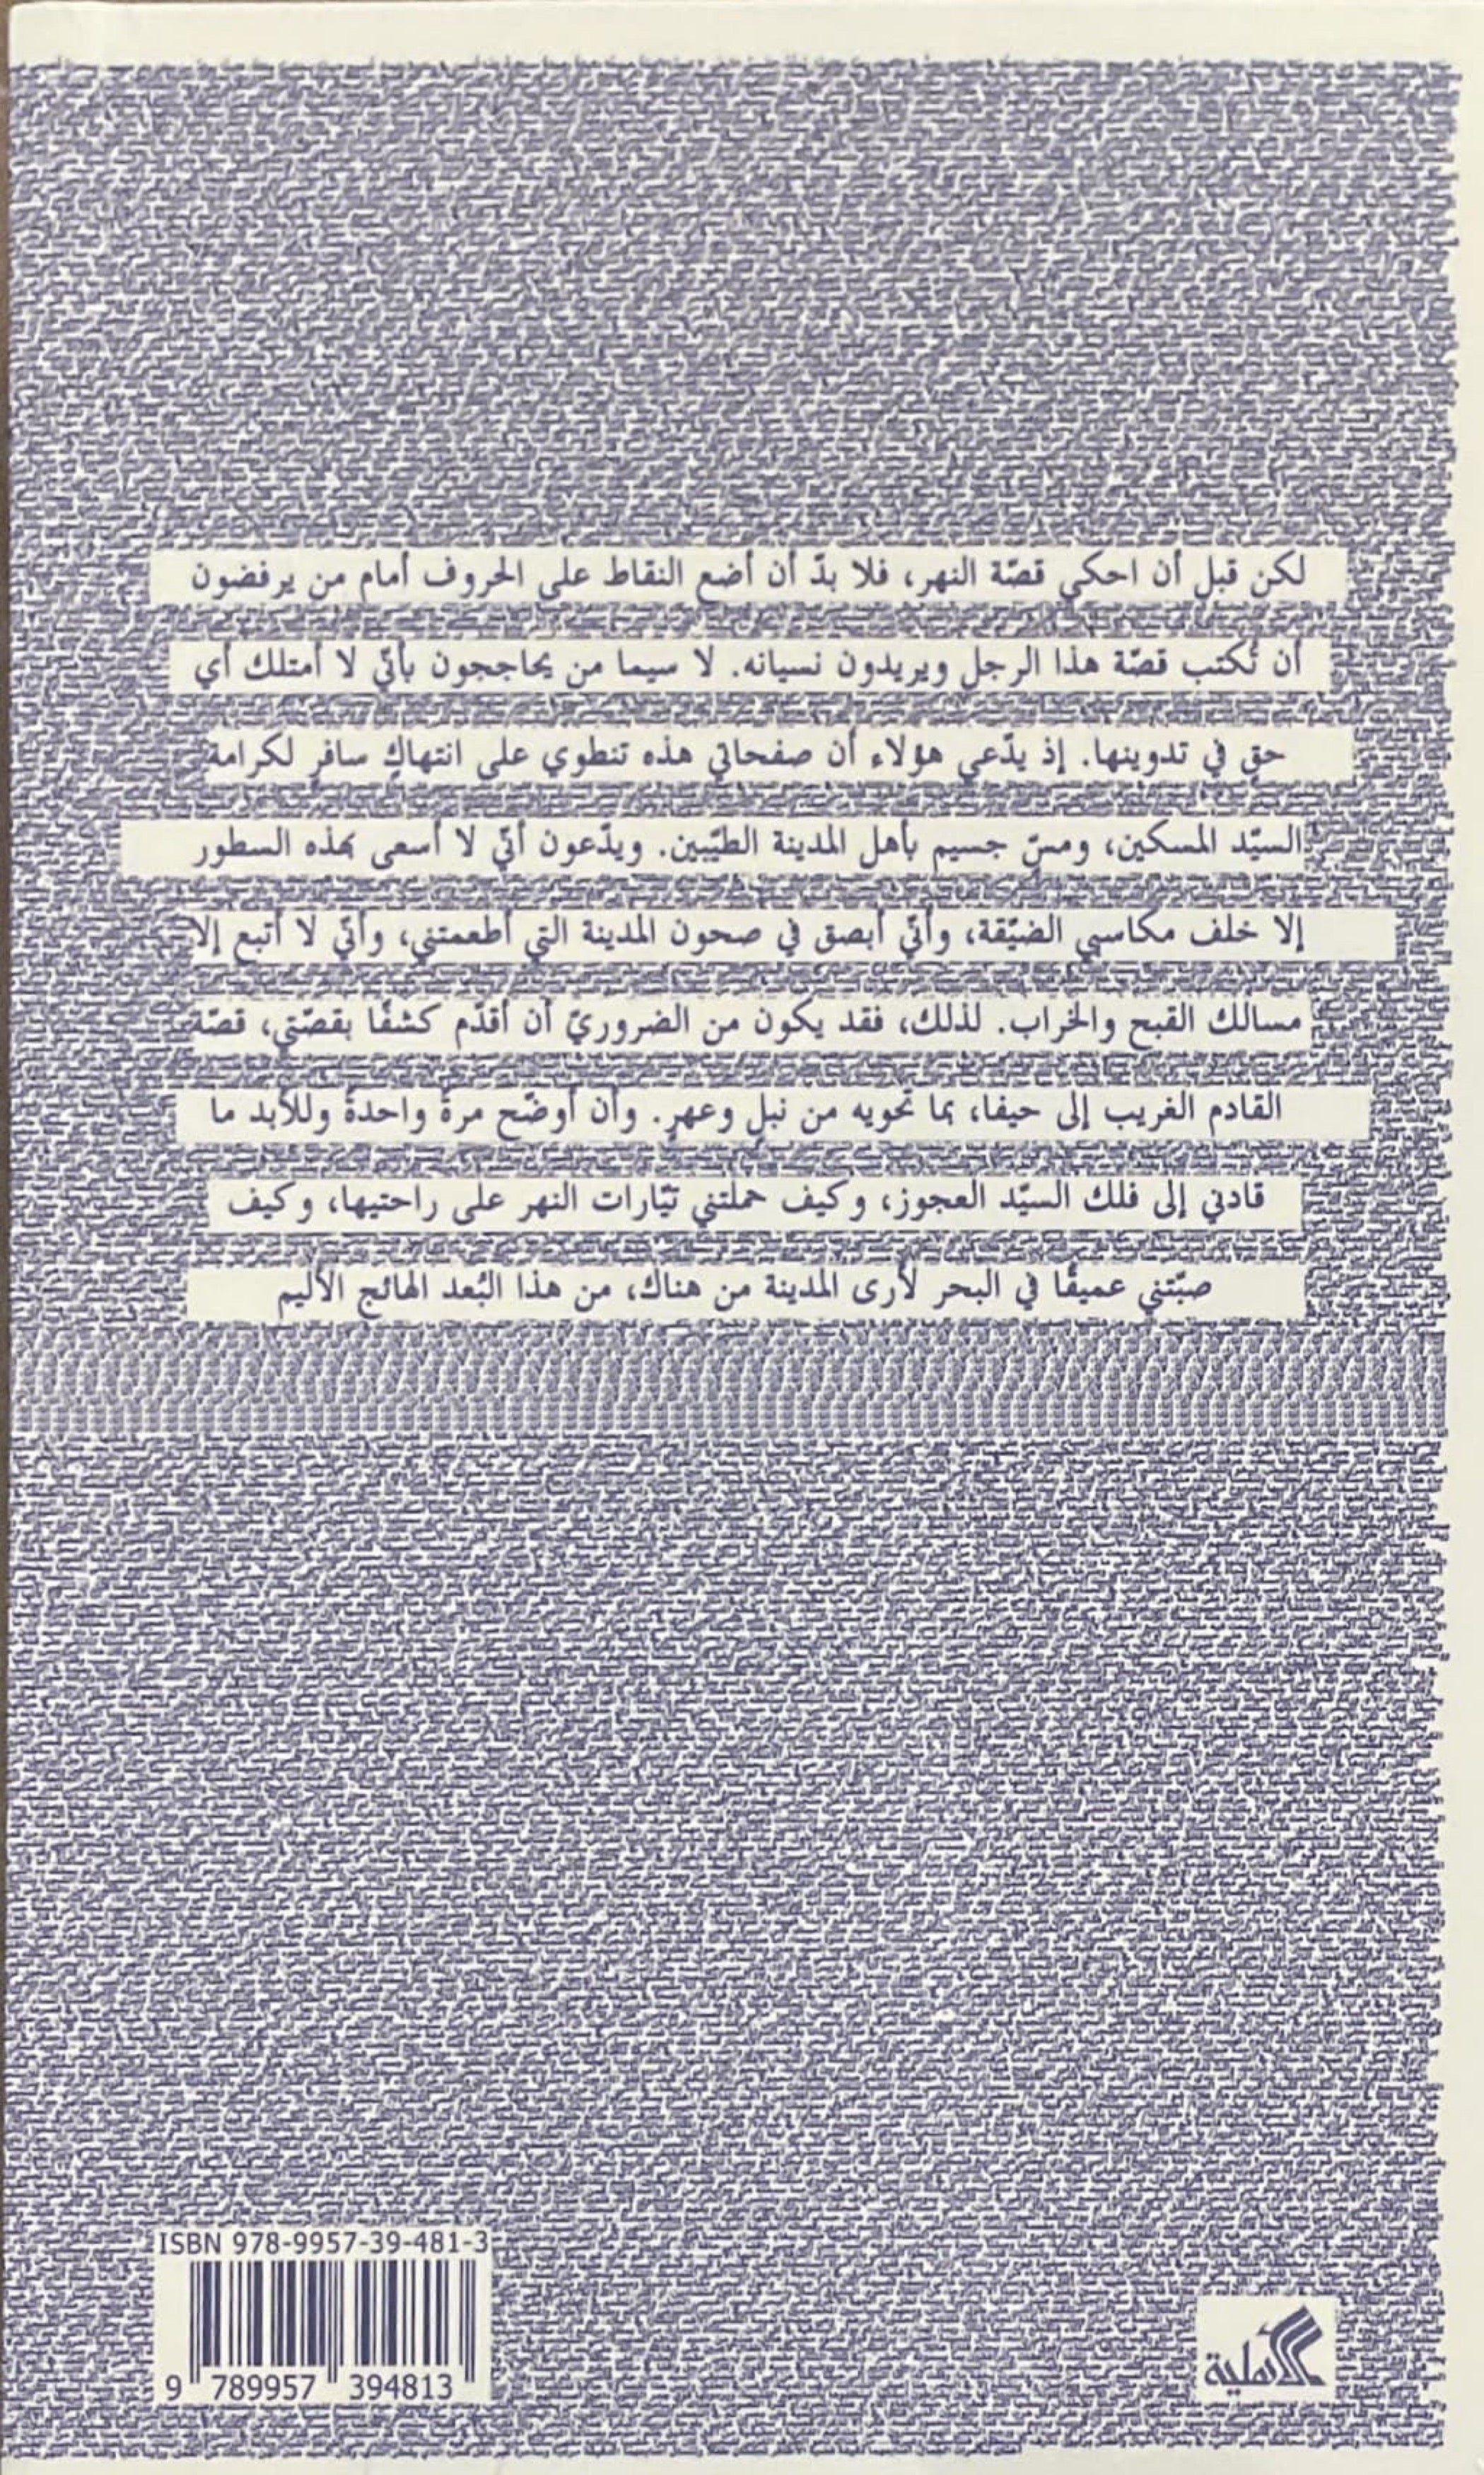 لكن قبل أن احكي قصّة النهر، فلا بدّ أن أضع النقاط على الحروف أمام من يرفضون
أن تُكتب قصّة هذا الرجل ويريدون نسيانه. لا سيما من يحاججون بأنّي لا أمتلك أي
حق في تدوينها. إذ يدّعي هؤلاء أن صفحاتي هذه تنطوي على انتهاكٍ سافرٍ لكرامة
السيّد المسكين، ومسّ جسيم بأهل المدينة الطيّبين. ويدّعون أنّي لا أسعى بهذه السطور
إلا خلف مكاسبي الضيّقة، وأنّي أبصق في صحون المدينة التي أطعمتني، وأنّي لا أتبع إلا
مسالك القبح والخراب. لذلك، فقد يكون من الضروريّ أن أقدّم كشفًا بقصّتي، قصّة
القادم الغريب إلى حيفا، بما تحويه من نبلٍ وعهرٍ. وأن أوضّح مرةً واحدةً وللأبد ما
قادني إلى فلك السيّد العجوز، وكيف حملتني تيّارات النهر على راحتيها، وكيف
صبّتني عميقًا في البحر لأرى المدينة من هناك، من هذا البُعد الهائج الأليم
ISBN 978-9957-39-481-3
9 789957 394813
الأهلية